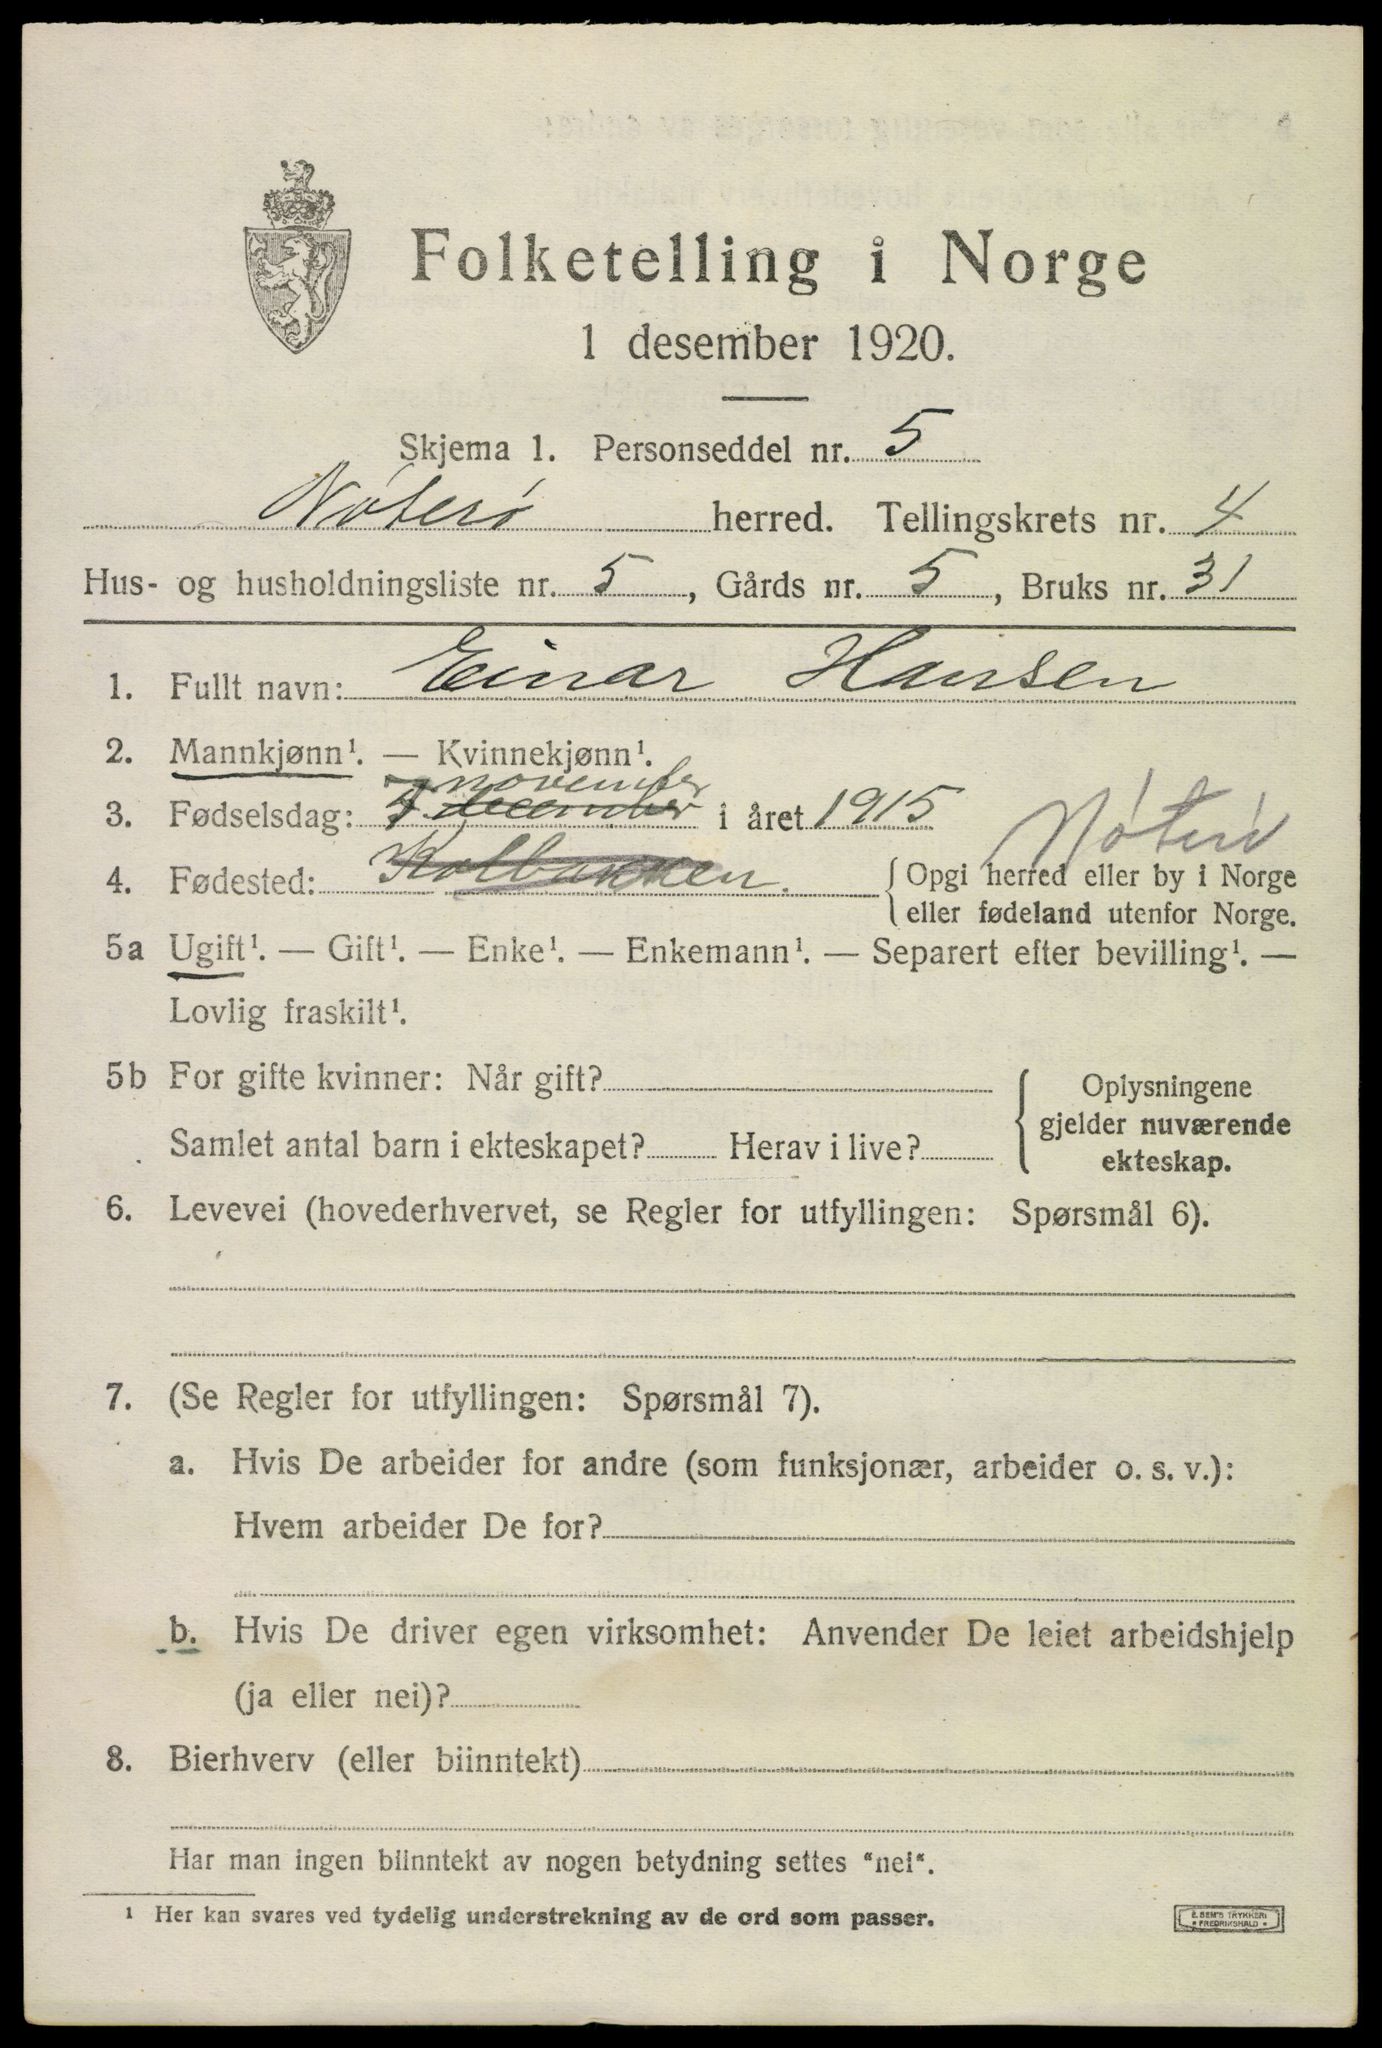 Folketelling i Norge
1 desember 1920.
Skjema 1. Personseddel nr. 5
Nøterø herred. Tellingskrets nr. 4
Hus- og husholdningsliste nr. 5, Gårds nr. 5, Bruks nr. 31
1. Fullt navn: Einar Hansen
2. Mannkjønn¹. — Kvinnekjønn¹.
november
3. Fødselsdag: 7 december i året 1915
Nøterø
4. Fødested: Kolbakken. { Opgi herred eller by i Norge
eller fødeland utenfor Norge.
5a Ugift¹. — Gift¹. — Enke¹. — Enkemann¹. — Separert efter bevilling¹. —
Lovlig fraskilt¹.
5b For gifte kvinner: Når gift?
Samlet antal barn i ekteskapet? Herav i live?
{ Oplysningene
gjelder nuværende
ekteskap.
6. Levevei (hovederhvervet, se Regler for utfyllingen: Spørsmål 6).
7. (Se Regler for utfyllingen: Spørsmål 7).
a. Hvis De arbeider for andre (som funksjonær, arbeider o. s. v.):
Hvem arbeider De for?
b. Hvis De driver egen virksomhet: Anvender De leiet arbeidshjelp
(ja eller nei)?
8. Bierhverv (eller biinntekt)
Har man ingen biinntekt av nogen betydning settes "nei".
¹ Her kan svares ved tydelig understrekning av de ord som passer.
E. SEM'S TRYKKERI
* FREDRIKSHALD *